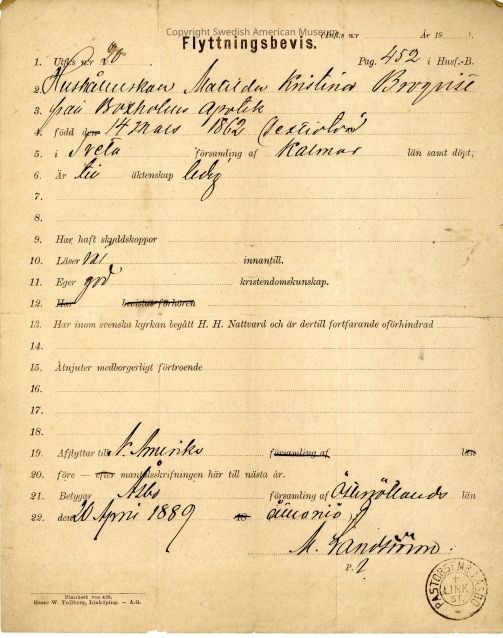 Copyright Swedish American Museum
(Utfl:s n:r År 18 .)
Flyttningsbevis.
1. Utfl:s n:r 20 Pag. 452 i Husf.-B.
2. Hushållerskan Matilda Kristina Bergqvist
3. från Boxholms Apotek
4. född den 14 Mars 1862 (sextiotvå)
5. i Tveta församling af Kalmar län samt döpt;
6. Är till äktenskap ledig
7.
8.
9. Har haft skyddskoppor
10. Läser väl innantill.
11. Eger god kristendomskunskap.
12. Har bevistat förhören
13. Har inom svenska kyrkan begått H. H. Nattvard och är dertill fortfarande oförhindrad
14.
15. Åtnjuter medborgerligt förtroende
16.
17.
18.
19. Afflyttar till N. Amerika församling af län
20. före — efter mantalsskrifningen här till nästa år.
21. Betygar Åsbo församling af Östergötlands län
22. den 20 April 1889 18
M. Landström.
P.
Blankett n:o 426.
Hanc W. Tullberg, Linköping. — A.G.
PASTORSEMB. I ÅSBO
LINK.
ST.